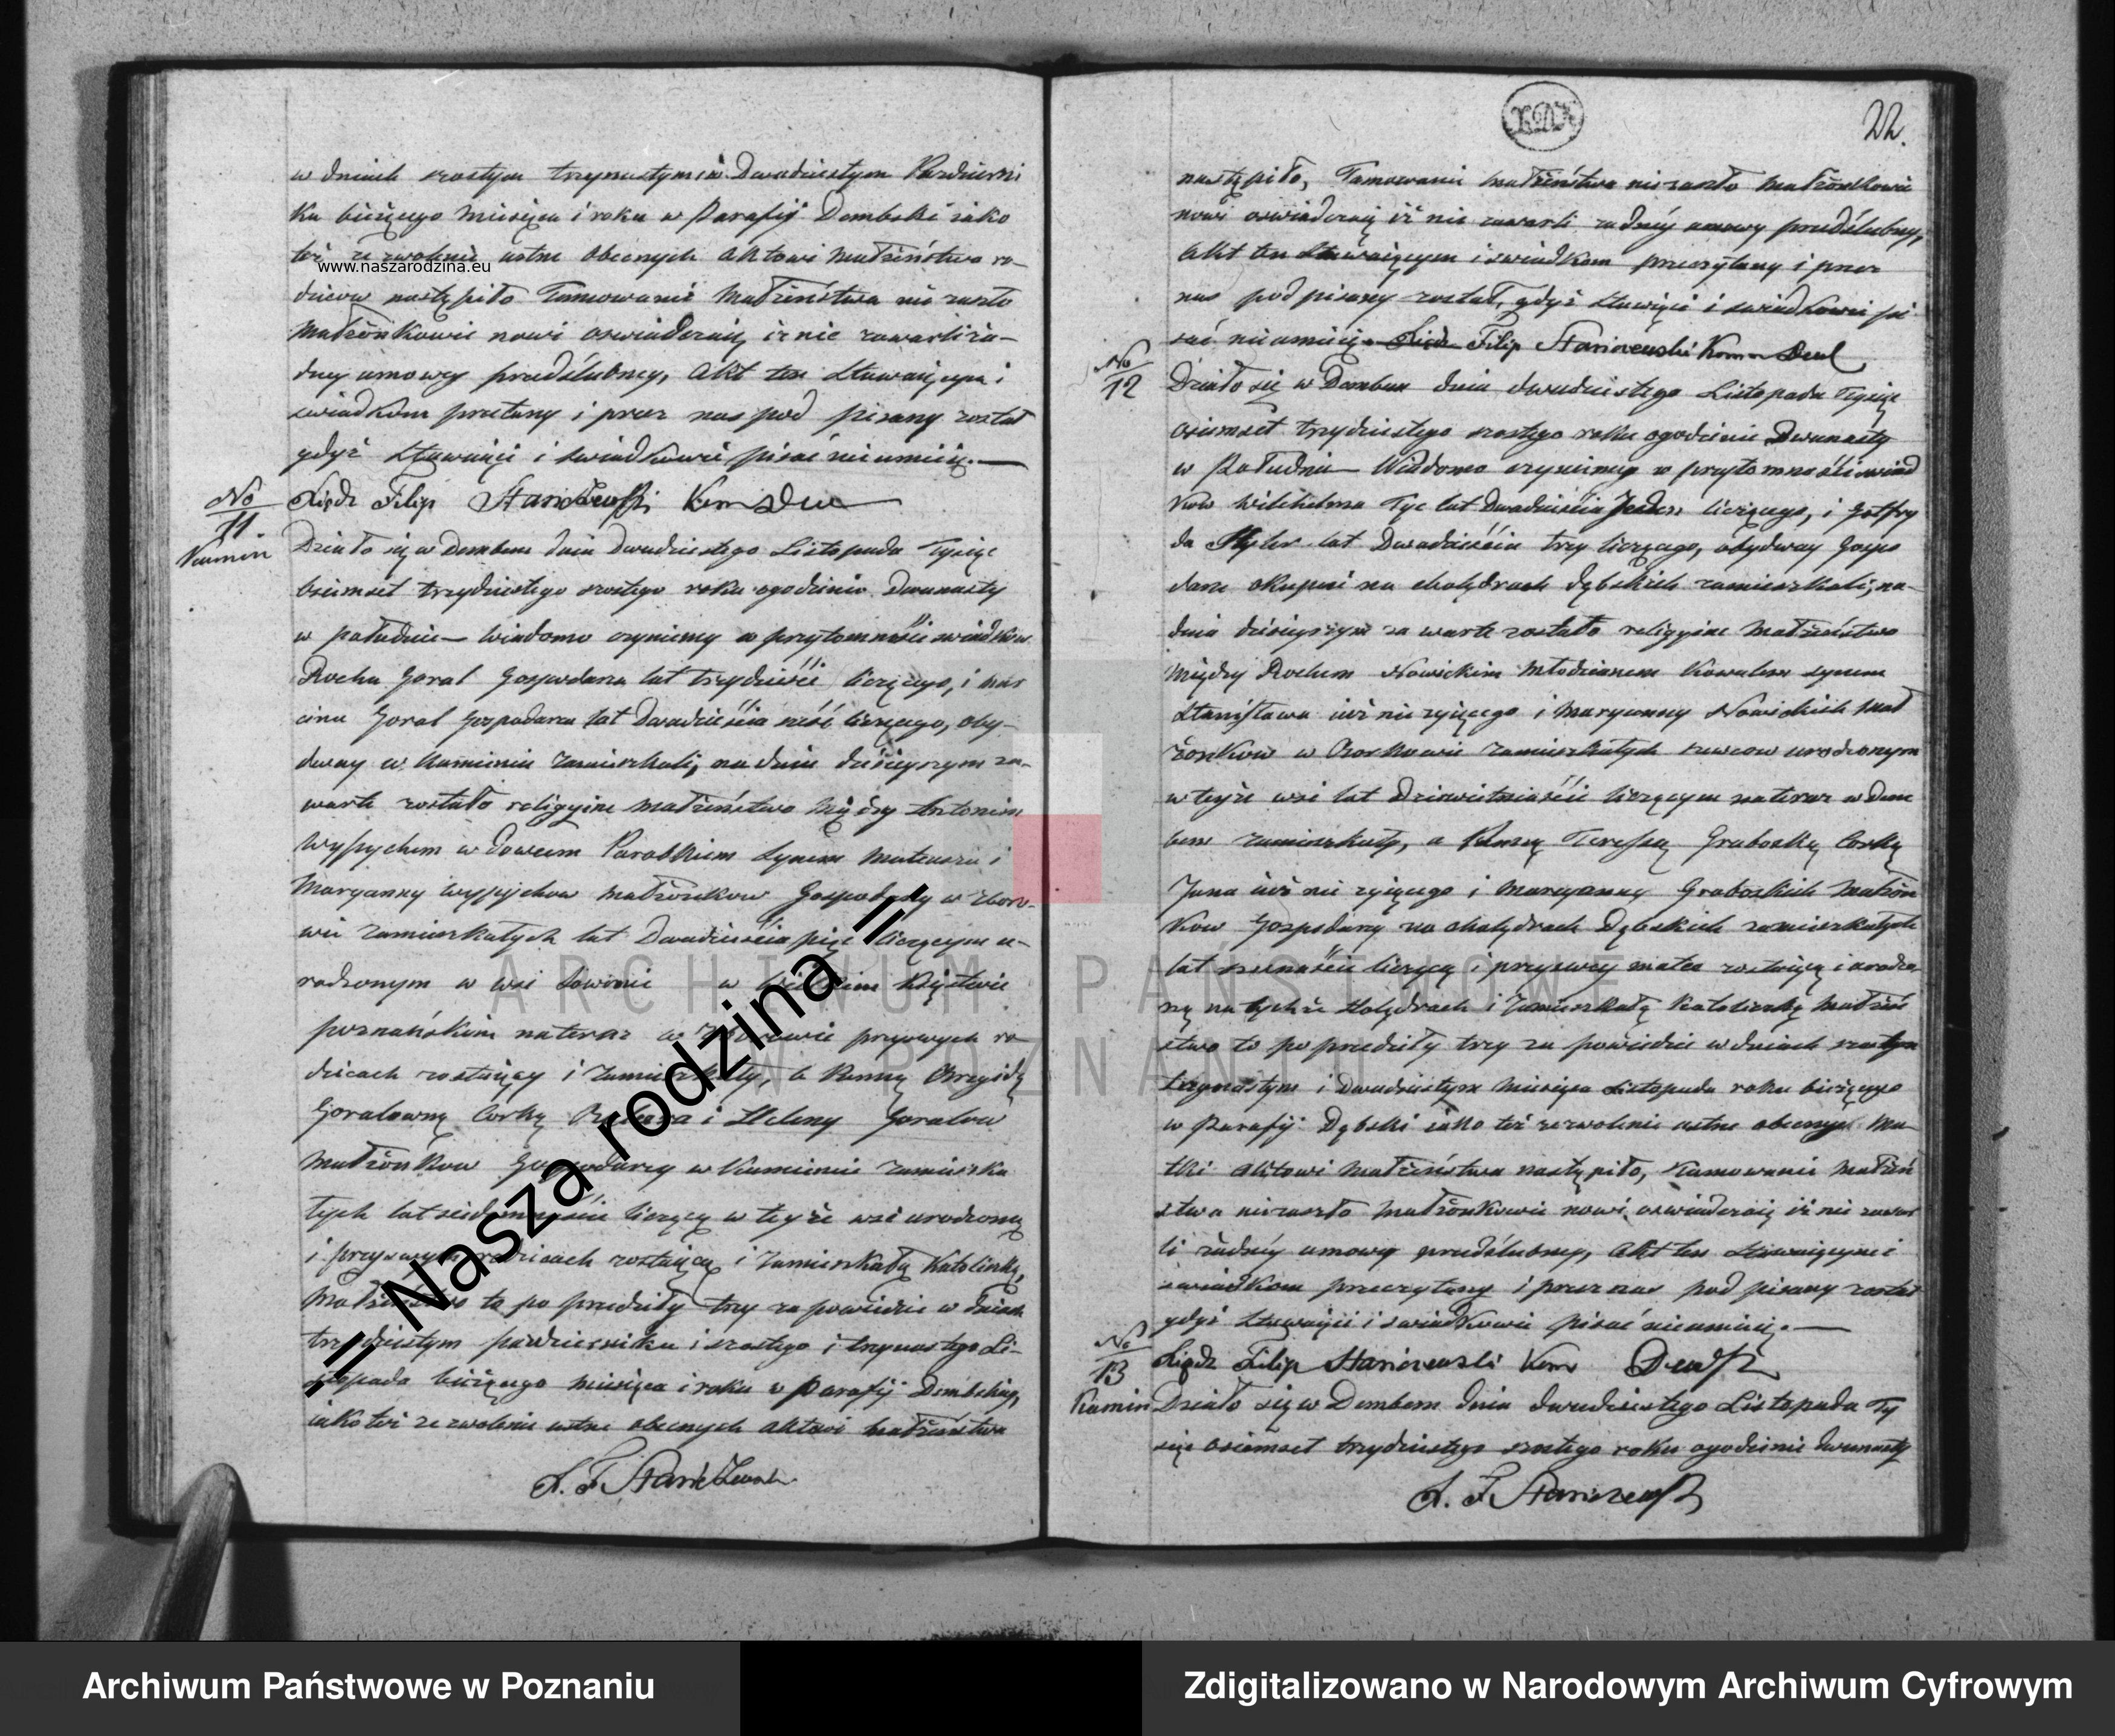 w dniach szostym trzynastym i w Dwudziestym Pazdzierni
ka bieżącego Miesiąca i roku w Parafij Dembski iako
też ze zwolenie ustne Obecnych Aktowi Małżeństwa ro-
www.naszarodzina.eu
dzicow nastąpiło Tamowanie Małżeństwa nie zaszło
Małżonkowie nowi oswiadczaią iz nie zawarli ża-
dney umowy przedślubney, Akt ten Stawaiącym i
swiadkom przeczytany i przez nas pod pisany został
gdyż Stawaiący i swiadkowie pisać nie umieią.
No 11 Xiądz Filip Staniszewski Kom
Kamień
Działo się w Dembem dnia Dwudziestego Listopada Tysiąc
Osiemset trzydziestego szostego roku ogodzinie Dwunasty
w południe Wiadomo czyniemy w przytomności swiadków
Rocha Goral Gospodarza lat trzydzieści liczącego, i Mar
cina Goral Gospodarza lat Dwadzieścia sześć liczącego, oby-
dway w Kamieniu Zamieszkali, na dniu dzisieyszym za-
warte zostało religyine Małżeństwo Między Antonim
Wypychem wdowcem Parobkiem Synem Mateusza i
Maryanny Wypychow Małżonkow Gospodarzy w Zboro-
wie Zamieszkałych lat Dwadzieścia pięć liczącym u-
rodzonym w wsi w Wielkim Xięstwie
poznańskim na teraz w Zborowie przyswych ro-
dzicach zostaiący i Zamieszkały, a Panną Brygidą
Goralowną Corką i Heleny Goralow
Małżonkow Gospodarzy w Kamieniu Zamieszka
łych lat siedemnaście liczącą w teyże wsi urodzoną
i przyswych rodzicach zostaiącą i Zamieszkałą Katoliczką,
Małżeństwo to po przedziły trzy zapowiedzie w dniach
trzydziestym pazdziernika i szostego i trzynastego Li-
stopada bieżącego miesiąca i roku w Parafij Dembskiey,
iako też ze zwolenie ustne obecnych Aktowi Małżeństwa
X. F. Staniszewski
= Nasza rodzina =
22.
nastąpiło, Tamowanie Małżeństwa nie zaszło Małżonkowie
nowi oswiadczaią iż nie zawarli żadnéy umowy przedślubney,
Akt ten Stawaiącym i swiadkom przeczytany i przez
nas podpisany został, gdyż Stawaiący i swiadkowie pi
sać nie umieią. Xiądz Filip Staniszewski Kom
No 12 Działo się w Dembem dnia dwudziestego Listopada Tysiąc
Osiemset trzydziestego szostego roku ogodzinie Dwunasty
w Południe Wiadomo czyniemy w przytomności swiad
kow Wilhelma Tyc lat Dwadzieścia Jeden liczącego, i Gotfry
da lat Dwadzieścia trzy liczącego, obydway Gospo
darze okupni na cholędrach Dębskich zamieszkali, na-
dniu dzisieyszym za warte zostało religyine Małżeństwo
Między Rochem Nowickim Młodzianem Kowalem synem
Stanisława iuż nie żyiącego i Maryanny Nowickich Mał
żonkow w Zamieszkałych urodzonym
w teyże wsi lat Dziewietnaście liczącym na teraz w Dem
bem zamieszkały, a Panną Teressą Graboską Corką
Jana iuż nie żyiącego i Maryanny Graboskich Małżon
kow Gospodarzy na cholędrach Dębskich zamieszkałych
lat szesnaście liczącą i przyswey matce zostaiącą i urodzo-
ną na tychże Holędrach i Zamieszkałą Katoliczką Małżeń
stwo to po przedziły trzy za powiedzie w dniach szostym
trzynastym i dwudziestym Miesiąca Listopada roku bieżącego
w Parafij Dębski iako też ze zwolenie ustne obecnyi Ma-
tki Aktowi Małżeństwa nastąpiło, Tamowanie Małżeń
stwa nie zaszło Małżonkowie nowi oswiadczaią iż nie zawar
li żadnéy umowy przedślubney, Akt ten Stawaiącymi
swiadkom przeczytany i przez nas pod pisany został
gdyż Stawaiący i swiadkowie pisać nie umieią.
No 13 Xiądz Filip Staniszewski Kom
Kamień Działo się w Dembem dnia dwudziestego Listopada Ty
siąc Osiemset trzydziestego szostego roku ogodzinie dwunasty
X. F. Staniszewski
ARCHIWUM PAŃSTWOWE
W POZNANIU
Archiwum Państwowe w Poznaniu
Zdigitalizowano w Narodowym Archiwum Cyfrowym